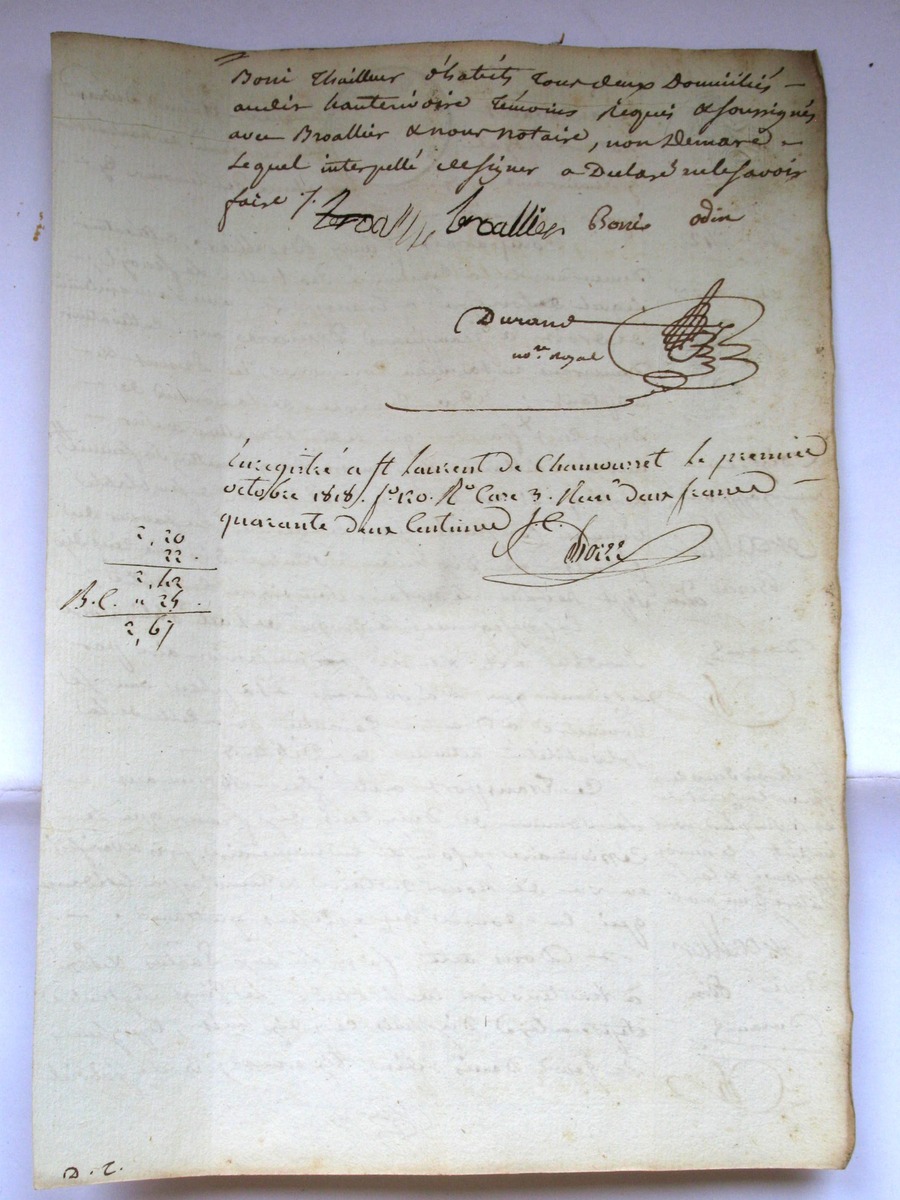 Boni thailleur d'habits tous deux Domiciliés
audit hauterivoire témoins Requis & soussignés
avec Broallier & nous notaire, non Demare
Lequel interpellé designer a Déclaré ne le savoir
faire /.
broallier Bonis odin
Durand
no.re Royal
Enregistré a St Laurent de Chamousset le premier
octobre 1818. fo. 120. Ro Case 3. Recu deux francs
quarante deux Centimes
2,20
22.
2,42
B.C. " 25.
2,67
D. C.